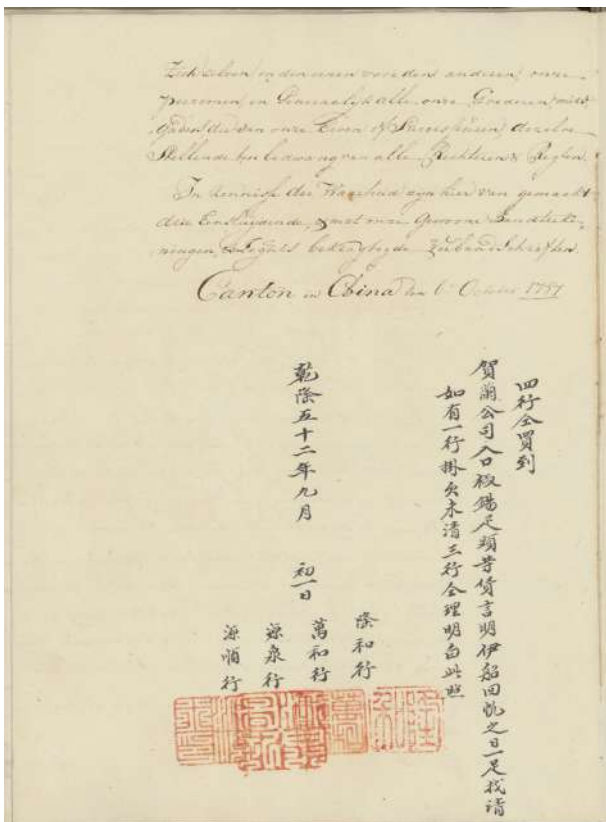 Zich zelven en den eenen voor den anderen, onze
persoonen, en Generaalijk alle onze Goederen, mits
gaders die van onze Erven of Successeuren, dezelve
Stellende ten bedwang van alle Rechteren & Regten.
In Kennisse der Waarheid zyn hier van gemaakt
drie Eensluydende, & met onze Gewoone Handteeke-
ningen, & Segels bekragtigde Verband Schriften.
Canton in China den October 1787
四行仝買到
賀蘭公司入口板錫疋頭等貨言明伊船回帆之日一足找清
如有一行掛欠未清三行仝理明白此照
乾隆五十二年九月 初一日
隆和行
萬和行
源泉行
源順行